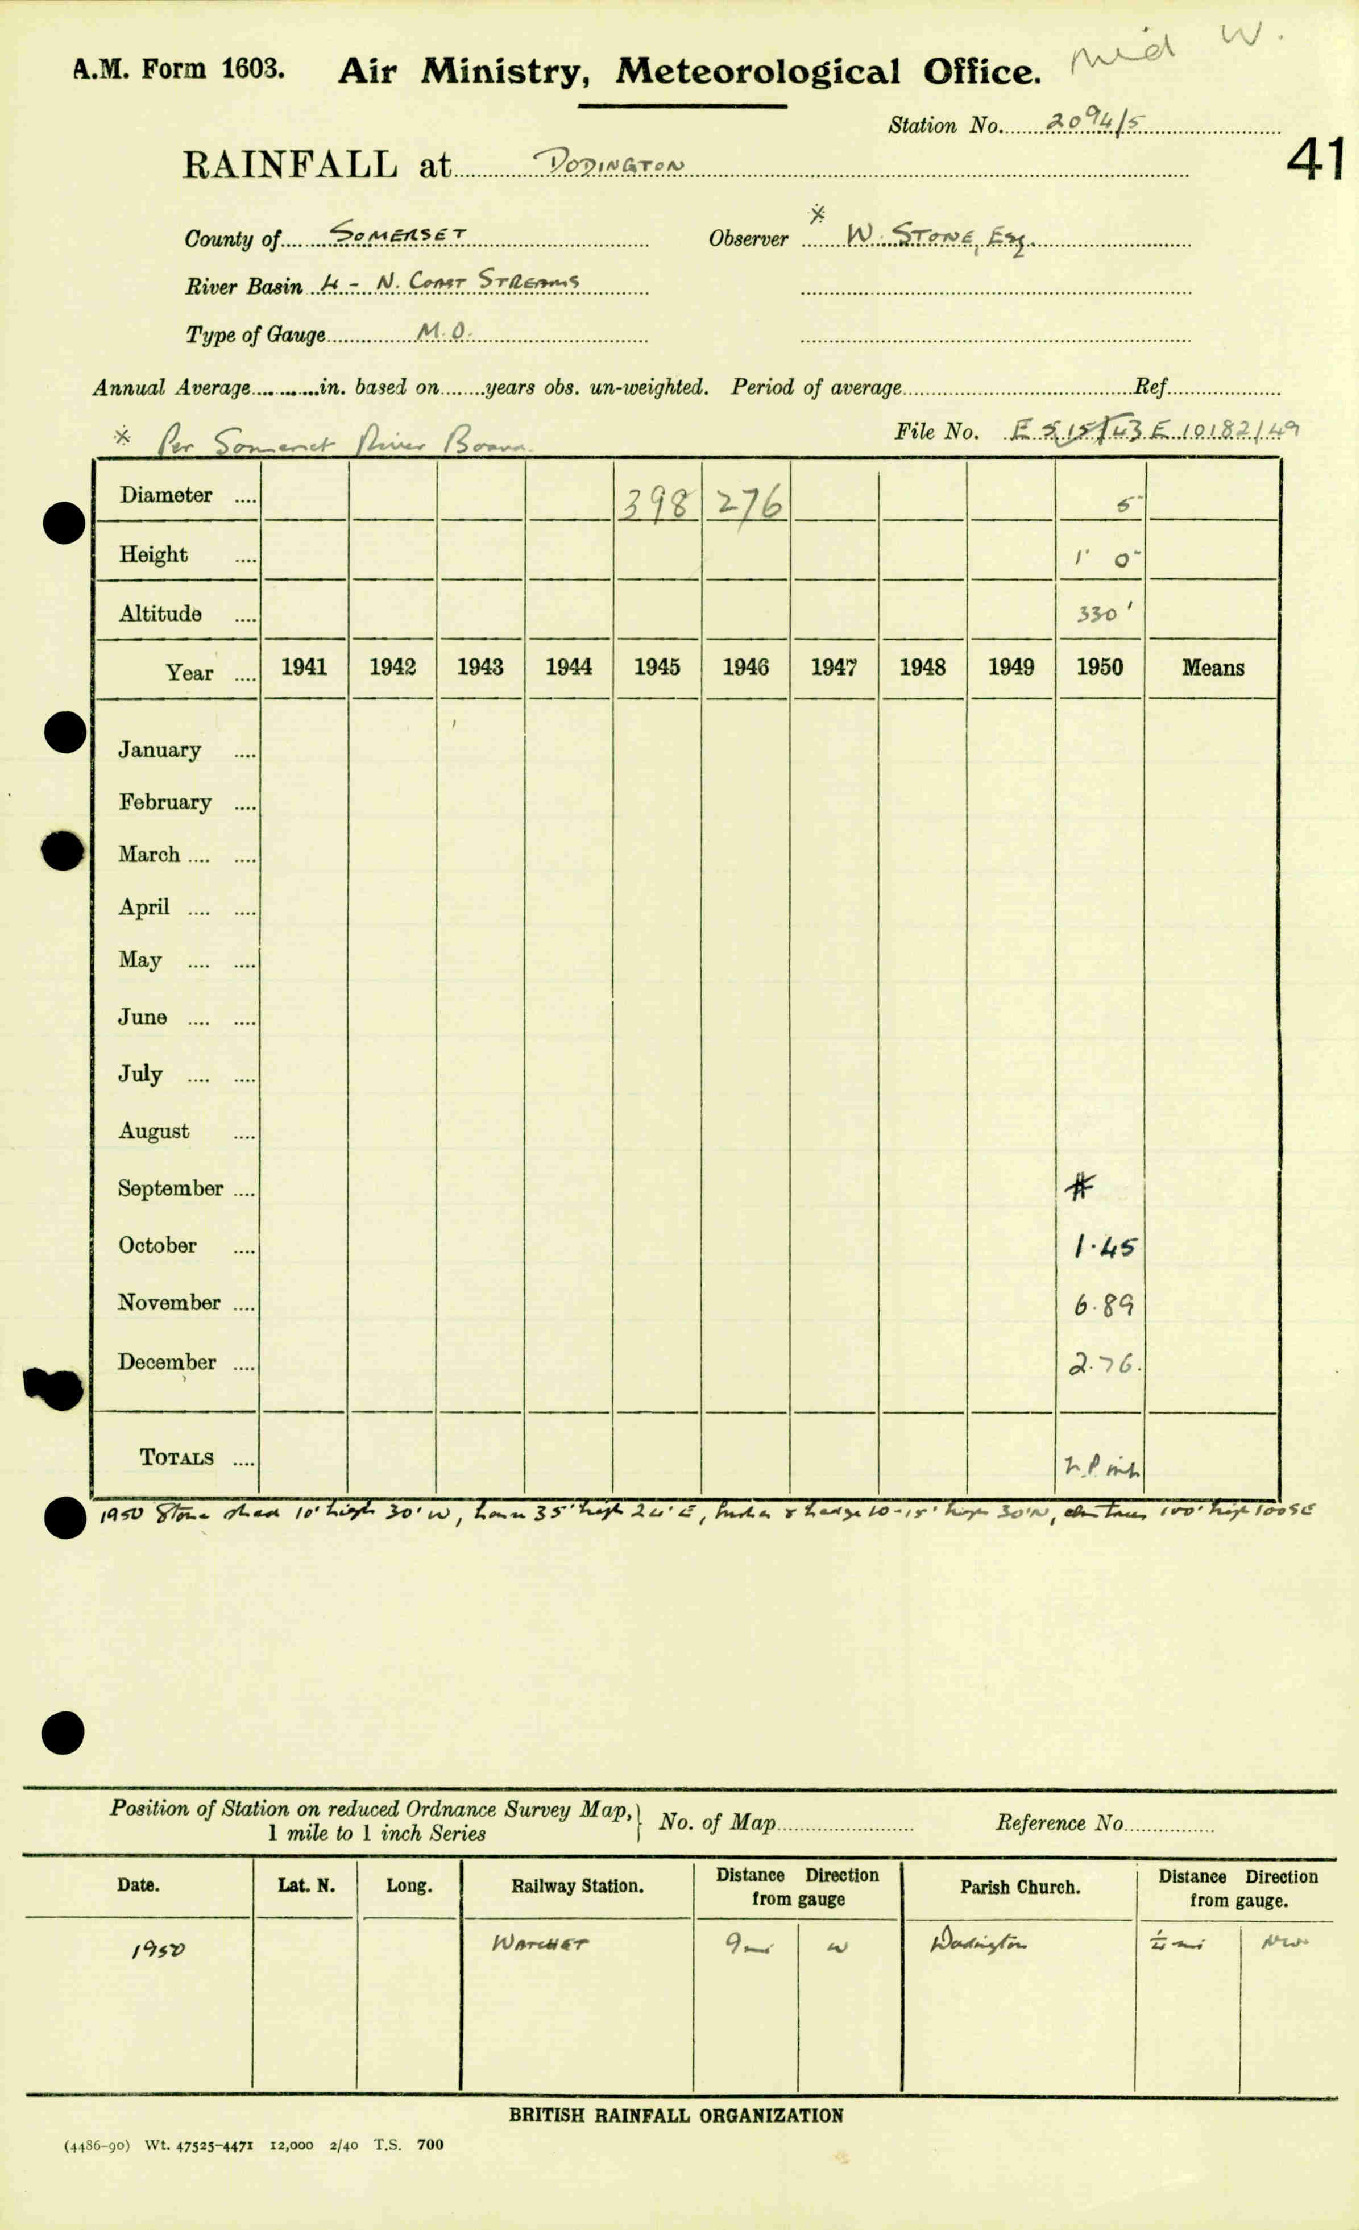 Mid W.
A.M. Form 1603. Air Ministry, Meteorological Office.
Station No. 2094/5
41
RAINFALL at DODINGTON
County of SOMERSET Observer * W. STONE, Esq.
River Basin 4 - N. COAST STREAMS
Type of Gauge M.O.
Annual Average in. based on years obs. un-weighted. Period of average Ref.
* Per Somerset River Board. File No. E 515/43 E 10182/49
Diameter 398 276 5"
Height 1' 0"
Altitude 330'
Year 1941 1942 1943 1944 1945 1946 1947 1948 1949 1950 Means
January
February
March
April
May
June
July
August
September #
October 1.45
November 6.89
December 2.76.
TOTALS
1950 Stone shed 10' high 30' W, house 35' high 24' E, bushes & hedge 10-15' high 30' N, elm trees 100' high 100 SE
Position of Station on reduced Ordnance Survey Map, } No. of Map Reference No.
1 mile to 1 inch Series
Date. Lat. N. Long. Railway Station. Distance Direction from gauge Parish Church. Distance Direction from gauge.
1950 WATCHET 9 mi W Dodington ¼ mi NW
BRITISH RAINFALL ORGANIZATION
(4486-90) Wt. 47525-4471 12,000 2/40 T.S. 700